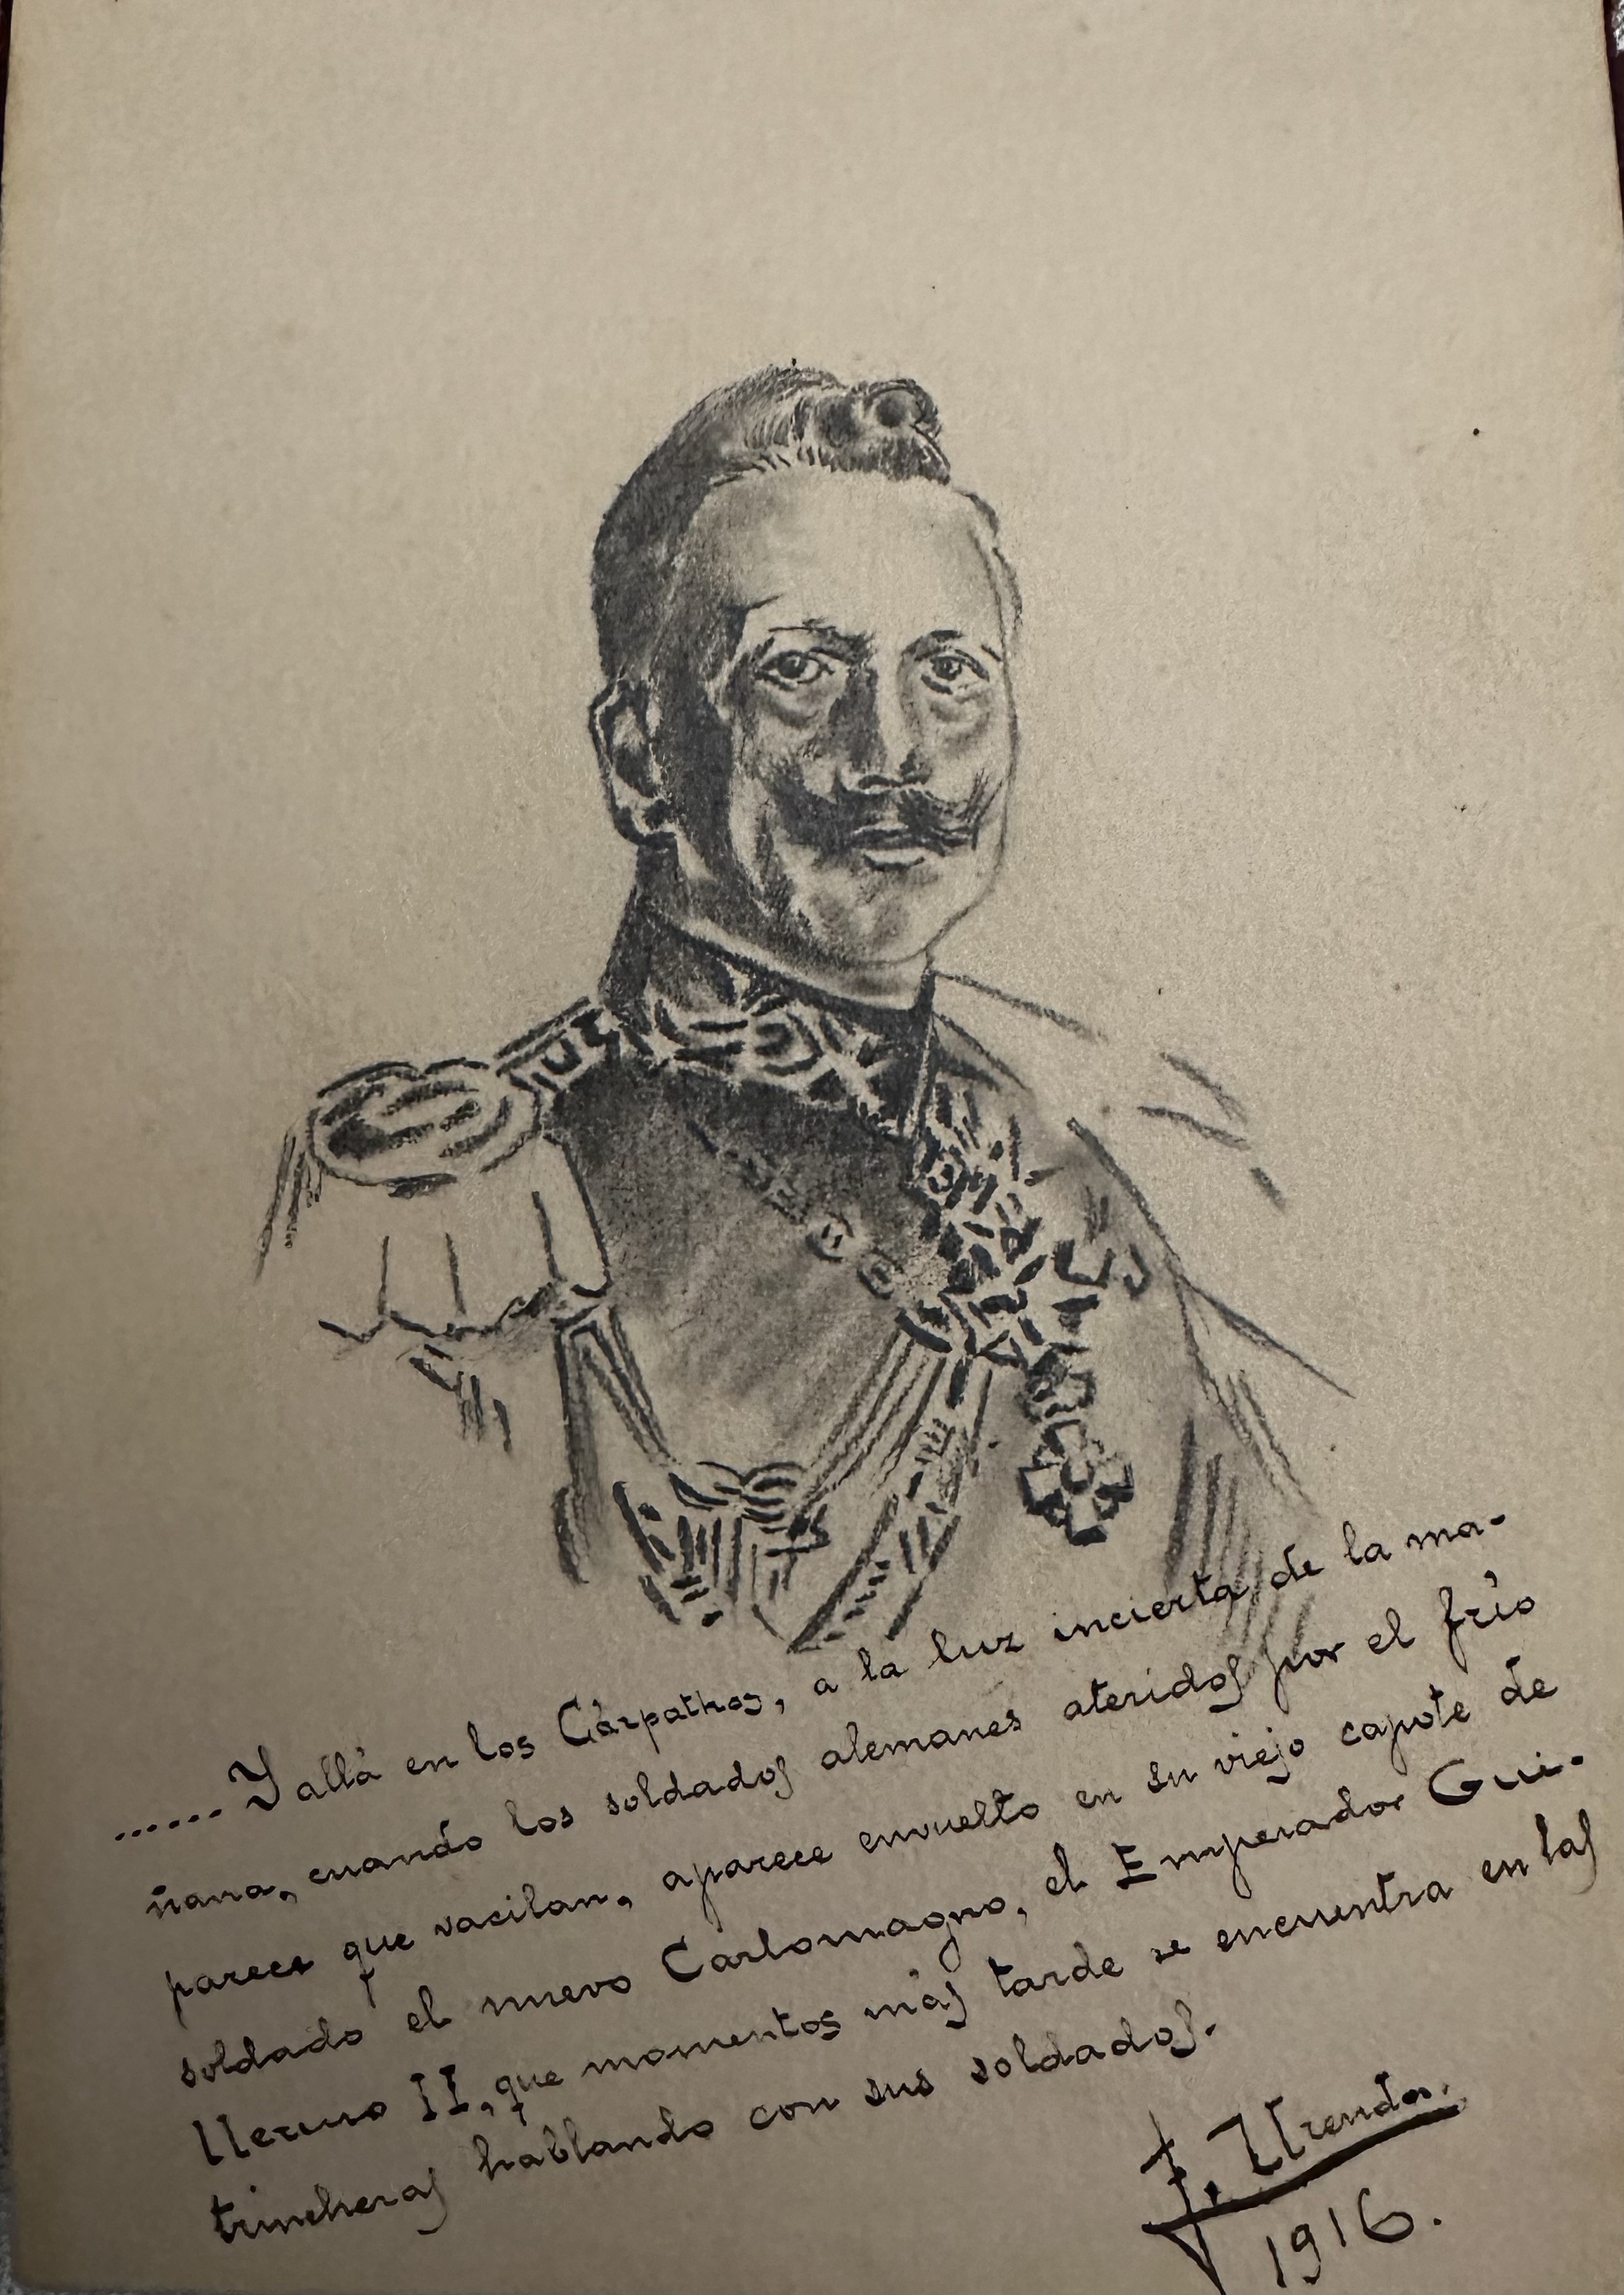 ...... Y allá en los Cárpathos, a la luz incierta de la ma-
ñana, cuando los soldados alemanes ateridos por el frío
parece que vacilan, aparece envuelto en su viejo capote de
soldado el nuevo Carlomagno, el Emperador Gui-
llermo II, que momentos más tarde se encuentra en las
trincheras hablando con sus soldados.
1916.